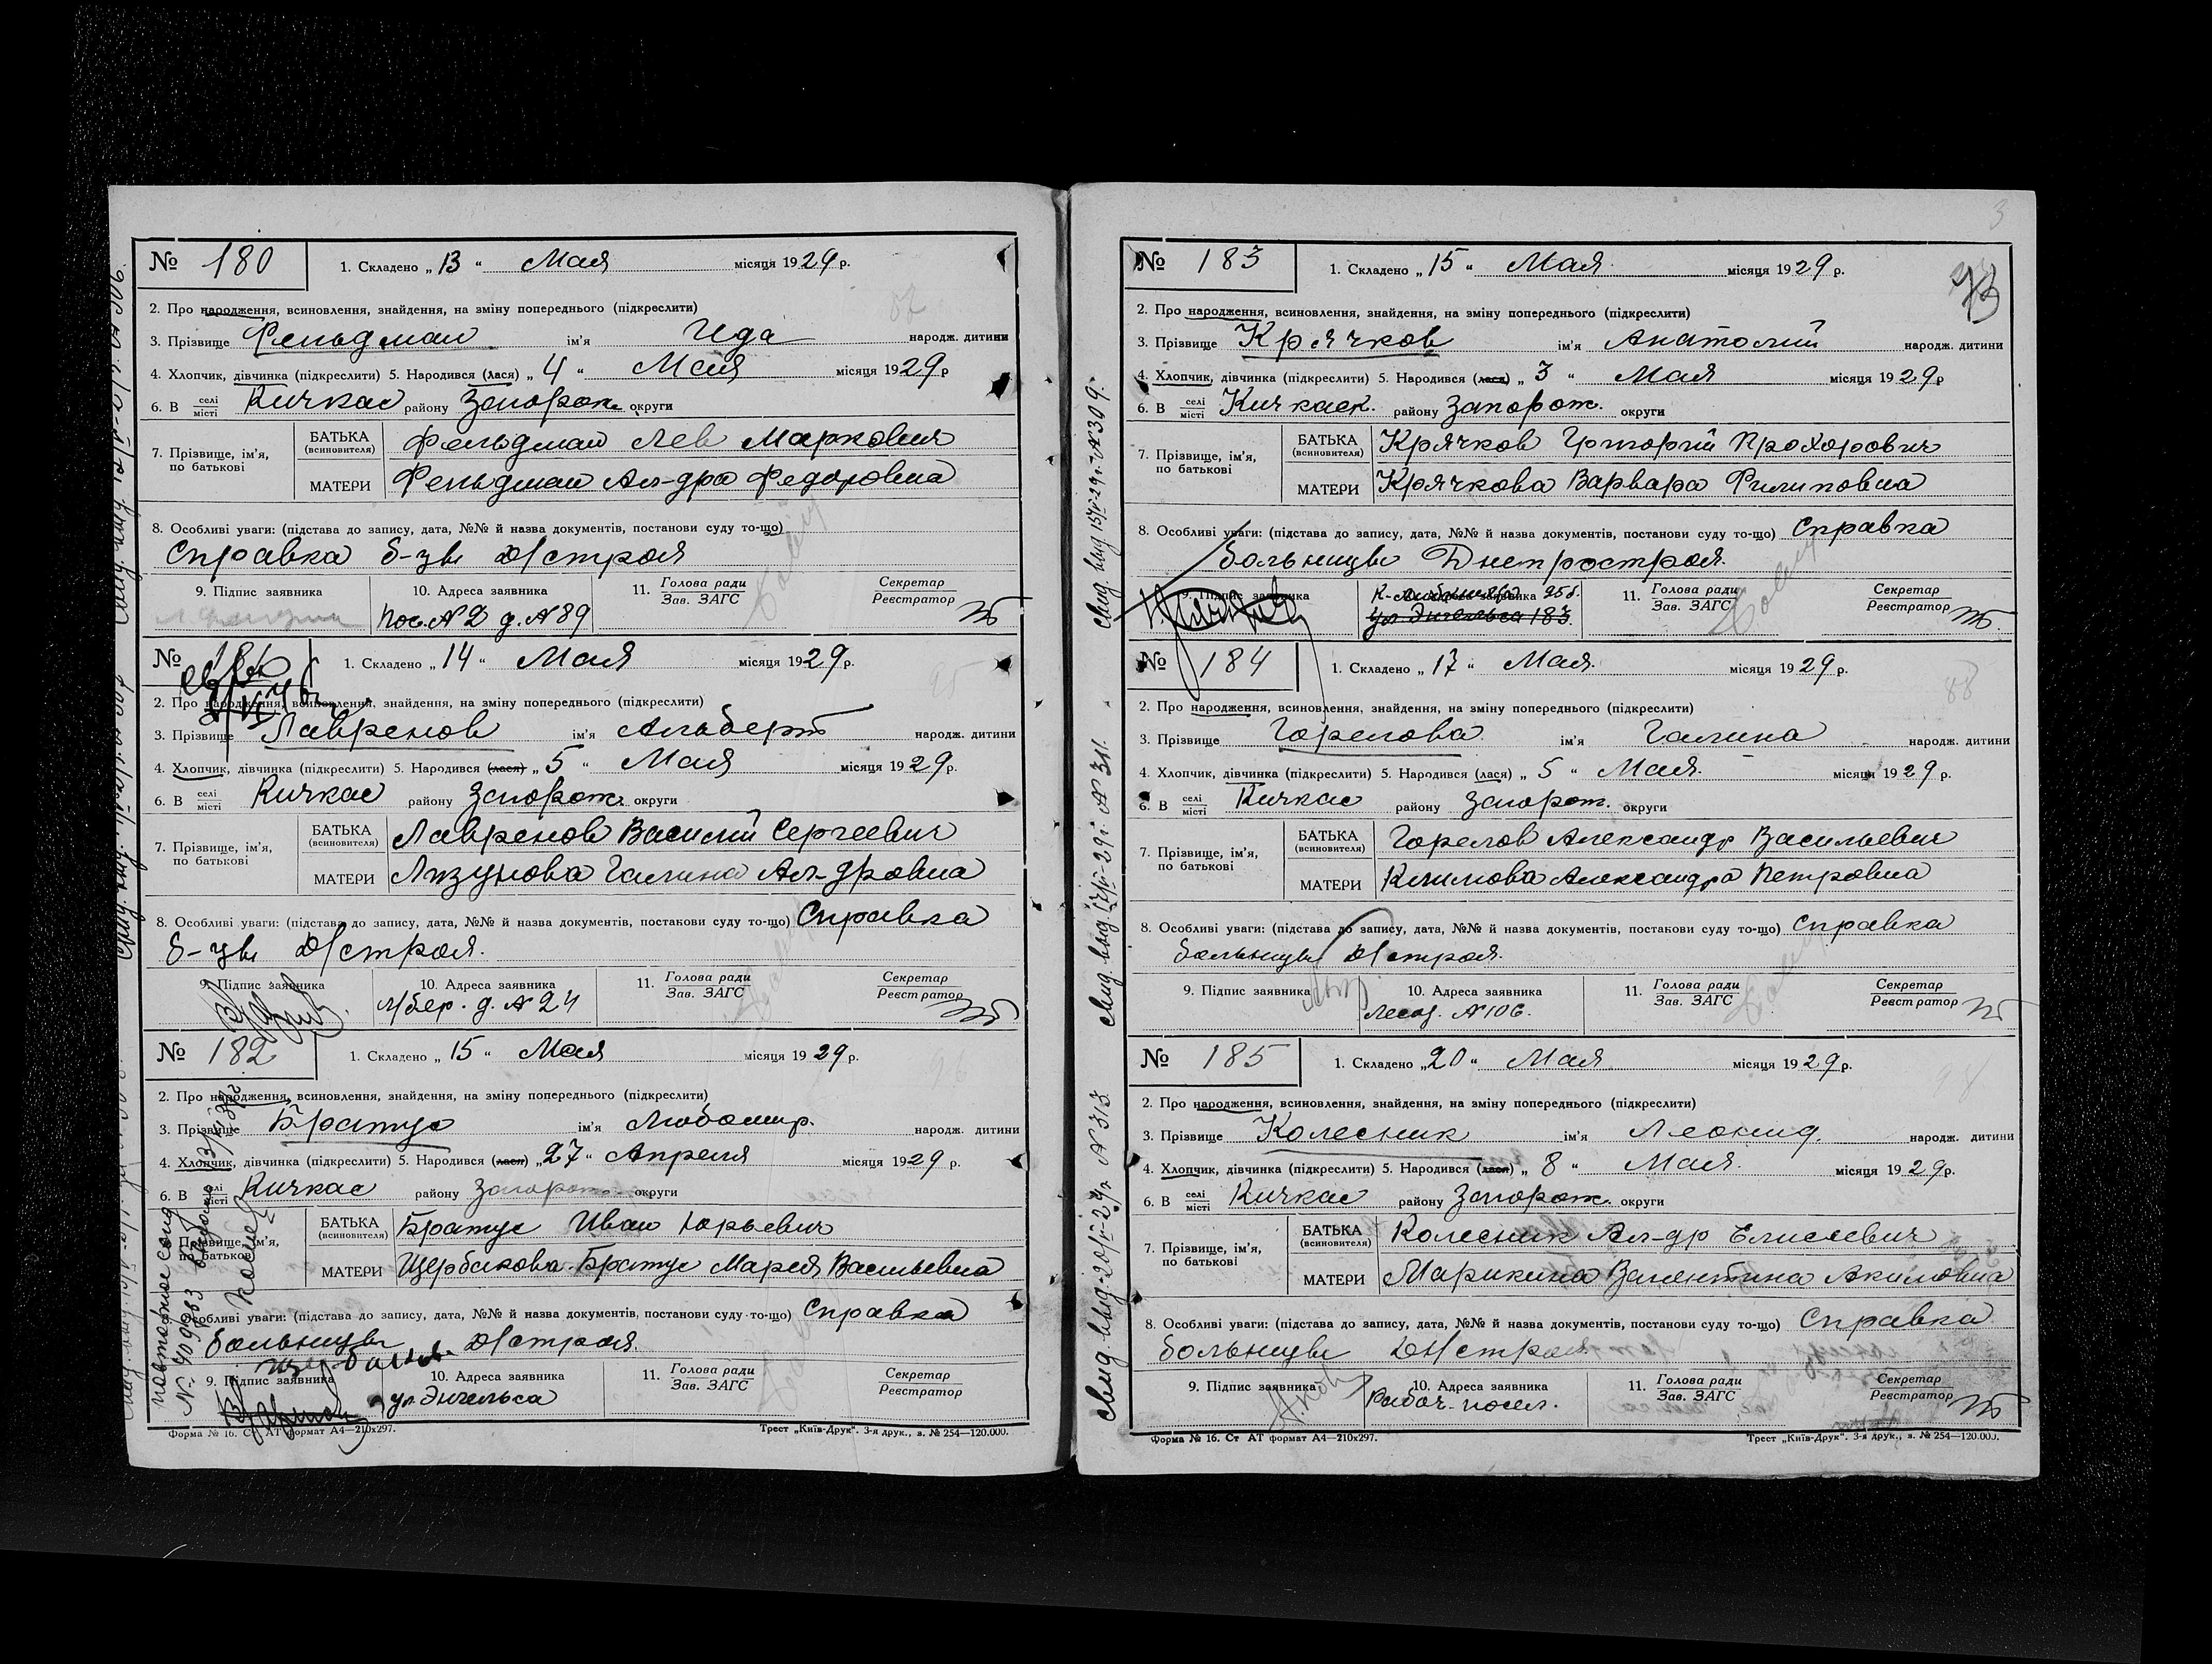 № 180 1. Складено „ 13 “ Мая місяця 1929 р.
2. Про народження, всиновлення, знайдення, на зміну попереднього (підкреслити)
3. Прізвище Фельдман ім'я Ида народж. дитини
4. Хлопчик, дівчинка (підкреслити) 5. Народився (лася) „ 4 “ Мая місяця 1929 р
6. В селі місті Кичкас району Запорож. округи
7. Прізвище, ім'я, по батькові
БАТЬКА (всиновителя) Фельдман Лев Маркович
МАТЕРИ Фельдман Ал-дра Федоровна
8. Особливі уваги: (підстава до запису, дата, №№ й назва документів, постанови суду то-що)
Справка б-цы Д/строя
9. Підпис заявника 10. Адреса заявника 11. Голова ради Зав. ЗАГС Секретар Реєстратор
пос. № 2 д. № 89
№ 1. Складено „ 14 “ Мая місяця 1929 р.
2. Про народження, всиновлення, знайдення, на зміну попереднього (підкреслити)
3. Прізвище Лавренов ім'я Альберт народж. дитини
4. Хлопчик, дівчинка (підкреслити) 5. Народився (лася) „ 5 “ Мая місяця 1929 р.
6. В селі місті Кичкас району Запорож. округи
7. Прізвище, ім'я, по батькові
БАТЬКА (всиновителя) Лавренов Василий Сергеевич
МАТЕРИ Лизунова Галина Ал-дровна
8. Особливі уваги: (підстава до запису, дата, №№ й назва документів, постакови суду то-що) Справка
б-цы Д/строя.
9. Підпис заявника 10. Адреса заявника 11. Голова ради Зав. ЗАГС Секретар Реєстратор
л/бер. д. № 24
№ 182 1. Складено „ 15 “ Мая місяця 1929 р.
2. Про народження, всиновлення, знайдення, на зміну попереднього (підкреслити)
3. Прізвище Братус ім'я Любомир. народж. дитини
4. Хлопчик, дівчинка (підкреслити) 5. Народився (лася) „ 27 “ Апреля місяця 1929 р.
6. В селі місті Кичкас району Запорож. округи
Прізвище, ім'я, по батькові
БАТЬКА (всиновителя) Братус Иван Юрьевич
МАТЕРИ Щербакова-Братус Мария Васильевна
Особливі уваги: (підстава до запису, дата, №№ й назва документів, постанови суду то-що) Справка
больницы Д/строя.
9. Підпис заявника 10. Адреса заявника 11. Голова ради Зав. ЗАГС Секретар Реєстратор
ул. Энгельса
Форма № 16. Ст АТ формат А4—210х297. Трест „Київ-Друк“. 3-я друк., з. № 254—120.000.
3
№ 183 1. Складено „ 15 “ Мая місяця 1929 р.
2. Про народження, всиновлення, знайдення, на зміну попереднього (підкреслити)
3. Прізвище Крячков ім'я Анатолий народж. дитини
4. Хлопчик, дівчинка (підкреслити) 5. Народився (лася) „ 3 “ Мая місяця 1929 р
6. В селі місті Кичкаск. району Запорож. округи
7. Прізвище, ім'я, по батькові
БАТЬКА (всиновителя) Крячков Григорий Прохорович
МАТЕРИ Крячкова Варвара Филиповна
8. Особливі уваги: (підстава до запису, дата, №№ й назва документів, постанови суду то-що) Справка
больницы Днепростроя.
9. Підпис заявника 10. Адреса заявника 11. Голова ради Зав. ЗАГС Секретар Реєстратор
ул. Энгельса 183.
№ 184 1. Складено „ 17 “ Мая. місяця 1929 р.
2. Про народження, всиновлення, знайдення, на зміну попереднього (підкреслити)
3. Прізвище Горелова ім'я Галина народж. дитини
4. Хлопчик, дівчинка (підкреслити) 5. Народився (лася) „ 5 “ Мая. місяця 1929 р.
6. В селі місті Кичкас району Запорож. округи
7. Прізвище, ім'я, по батькові
БАТЬКА (всиновителя) Горелов Александр Васильевич
МАТЕРИ Климова Александра Петровна
8. Особливі уваги: (підстава до запису, дата, №№ й назва документів, постакови суду то-що) Справка
больницы Д/строя.
9. Підпис заявника 10. Адреса заявника 11. Голова ради Зав. ЗАГС Секретар Реєстратор
Лесоз. № 106.
№ 185 1. Складено „ 20 “ Мая місяця 1929 р.
2. Про народження, всиновлення, знайдення, на зміну попереднього (підкреслити)
3. Прізвище Колесник ім'я Леонид. народж. дитини
4. Хлопчик, дівчинка (підкреслити) 5. Народився (лася) „ 8 “ Мая. місяця 1929 р.
6. В селі місті Кичкас району Запорож. округи
7. Прізвище, ім'я, по батькові
БАТЬКА (всиновителя) Колесник Ал-др Елисеевич
МАТЕРИ Марикина Валентина Акимовна
8. Особливі уваги: (підстава до запису, дата, №№ й назва документів, постанови суду то-що) Справка
больницы Д/строя.
9. Підпис заявника 10. Адреса заявника 11. Голова ради Зав. ЗАГС Секретар Реєстратор
Рабоч. посел.
Форма № 16. Ст АТ формат А4—210х297. Трест „Київ-Друк“. 3-я друк., з. № 254—120.000.